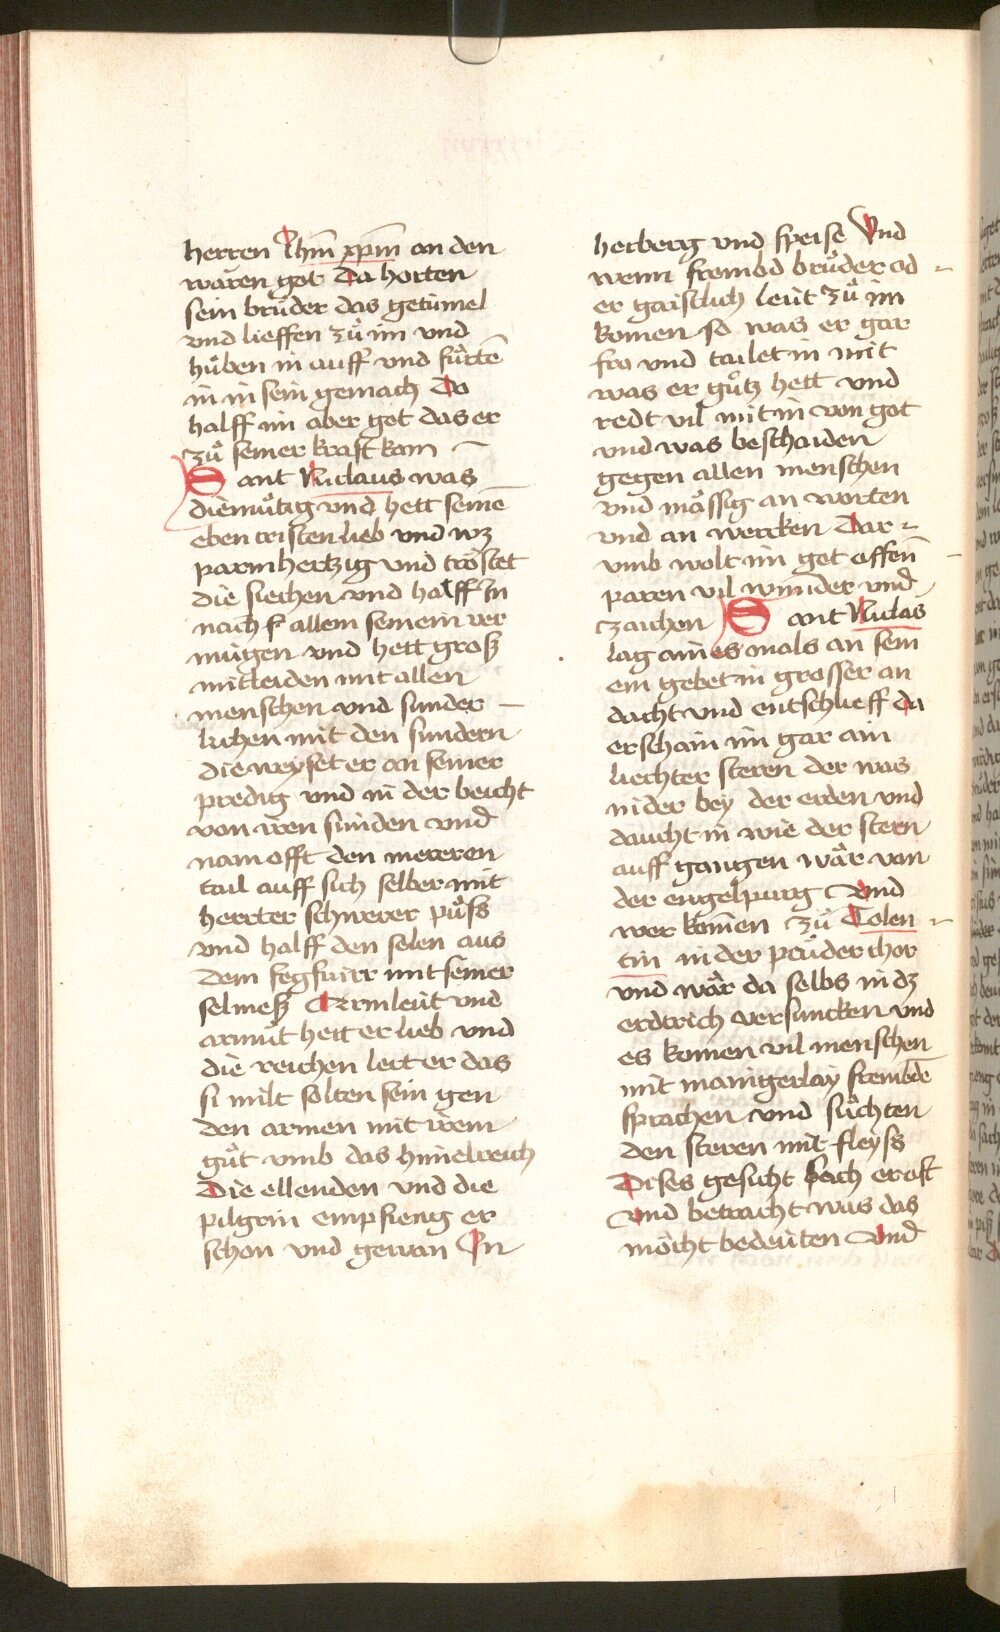 herren Jhm̄ xpm̄ an den
waren got Da horten
sein brůder das getümel
vnd lieffen zů im vnd
hůben in auff vnd fůrtē
in in sein gemach Do
halff im aber got das er
zů seiner kraft kam
Sant Niclaus was
diemůtig vnd hett seinē
eben cristen lieb vnd wz
parmhertzig vnd tröstet
die siechen vnd halff In
nach allem seinem ver
mügen vnd hett grosz
mitleiden mit allen
menschen vnd sunder
lichen mit den sundern
die weyset er an seiner
predig vnd in der beicht
von iren sünden vnd
nam offt den mereren
tail auff sich selber mit
herrter schwerer půss
vnd halff den selen aus
dem fegfuirr mit seiner
selmesz Arm leüt vnd
armüt hett er lieb vnd
die reichen lert er das
si milt solten sein gen
den armen mit irem
gůt vmb das himelreich
Die ellenden vnd die
pilgrin empfieng er
schon vnd gewan In
herberg vnd speise Vnd
wenn frembd brůder od
er gaistlich leüt zů im
komen so was er gar
fro vnd tailet in mit
was er gůtz hett vnd
redt vil mit in von got
vnd was beschaiden
gegen allen menschen
vnd mössig an worten
vnd an wercken Dar
vmb wolt im got offen
paren vil wunder vnd
zaichen Sant Niclas
lag aines mals an sein
em gebet in grosser an
dacht vnd entschlieff da
erschain im gar ain
liechter steren der was
nider bey der erden vnd
daucht in wie der stern
auff gangen wår von
der engelpurg Vnd
wer komen zů Tolen
tin in der průder chor
vnd wår da selbs in dz
erdtrich versuncken vnd
es komen vil menschen
mit manigerlay frembde
sprachen vnd sůchten
den steren mit fleyss
Dises gesicht sach er oft
vnd betracht was das
möcht bedeüten Vnd